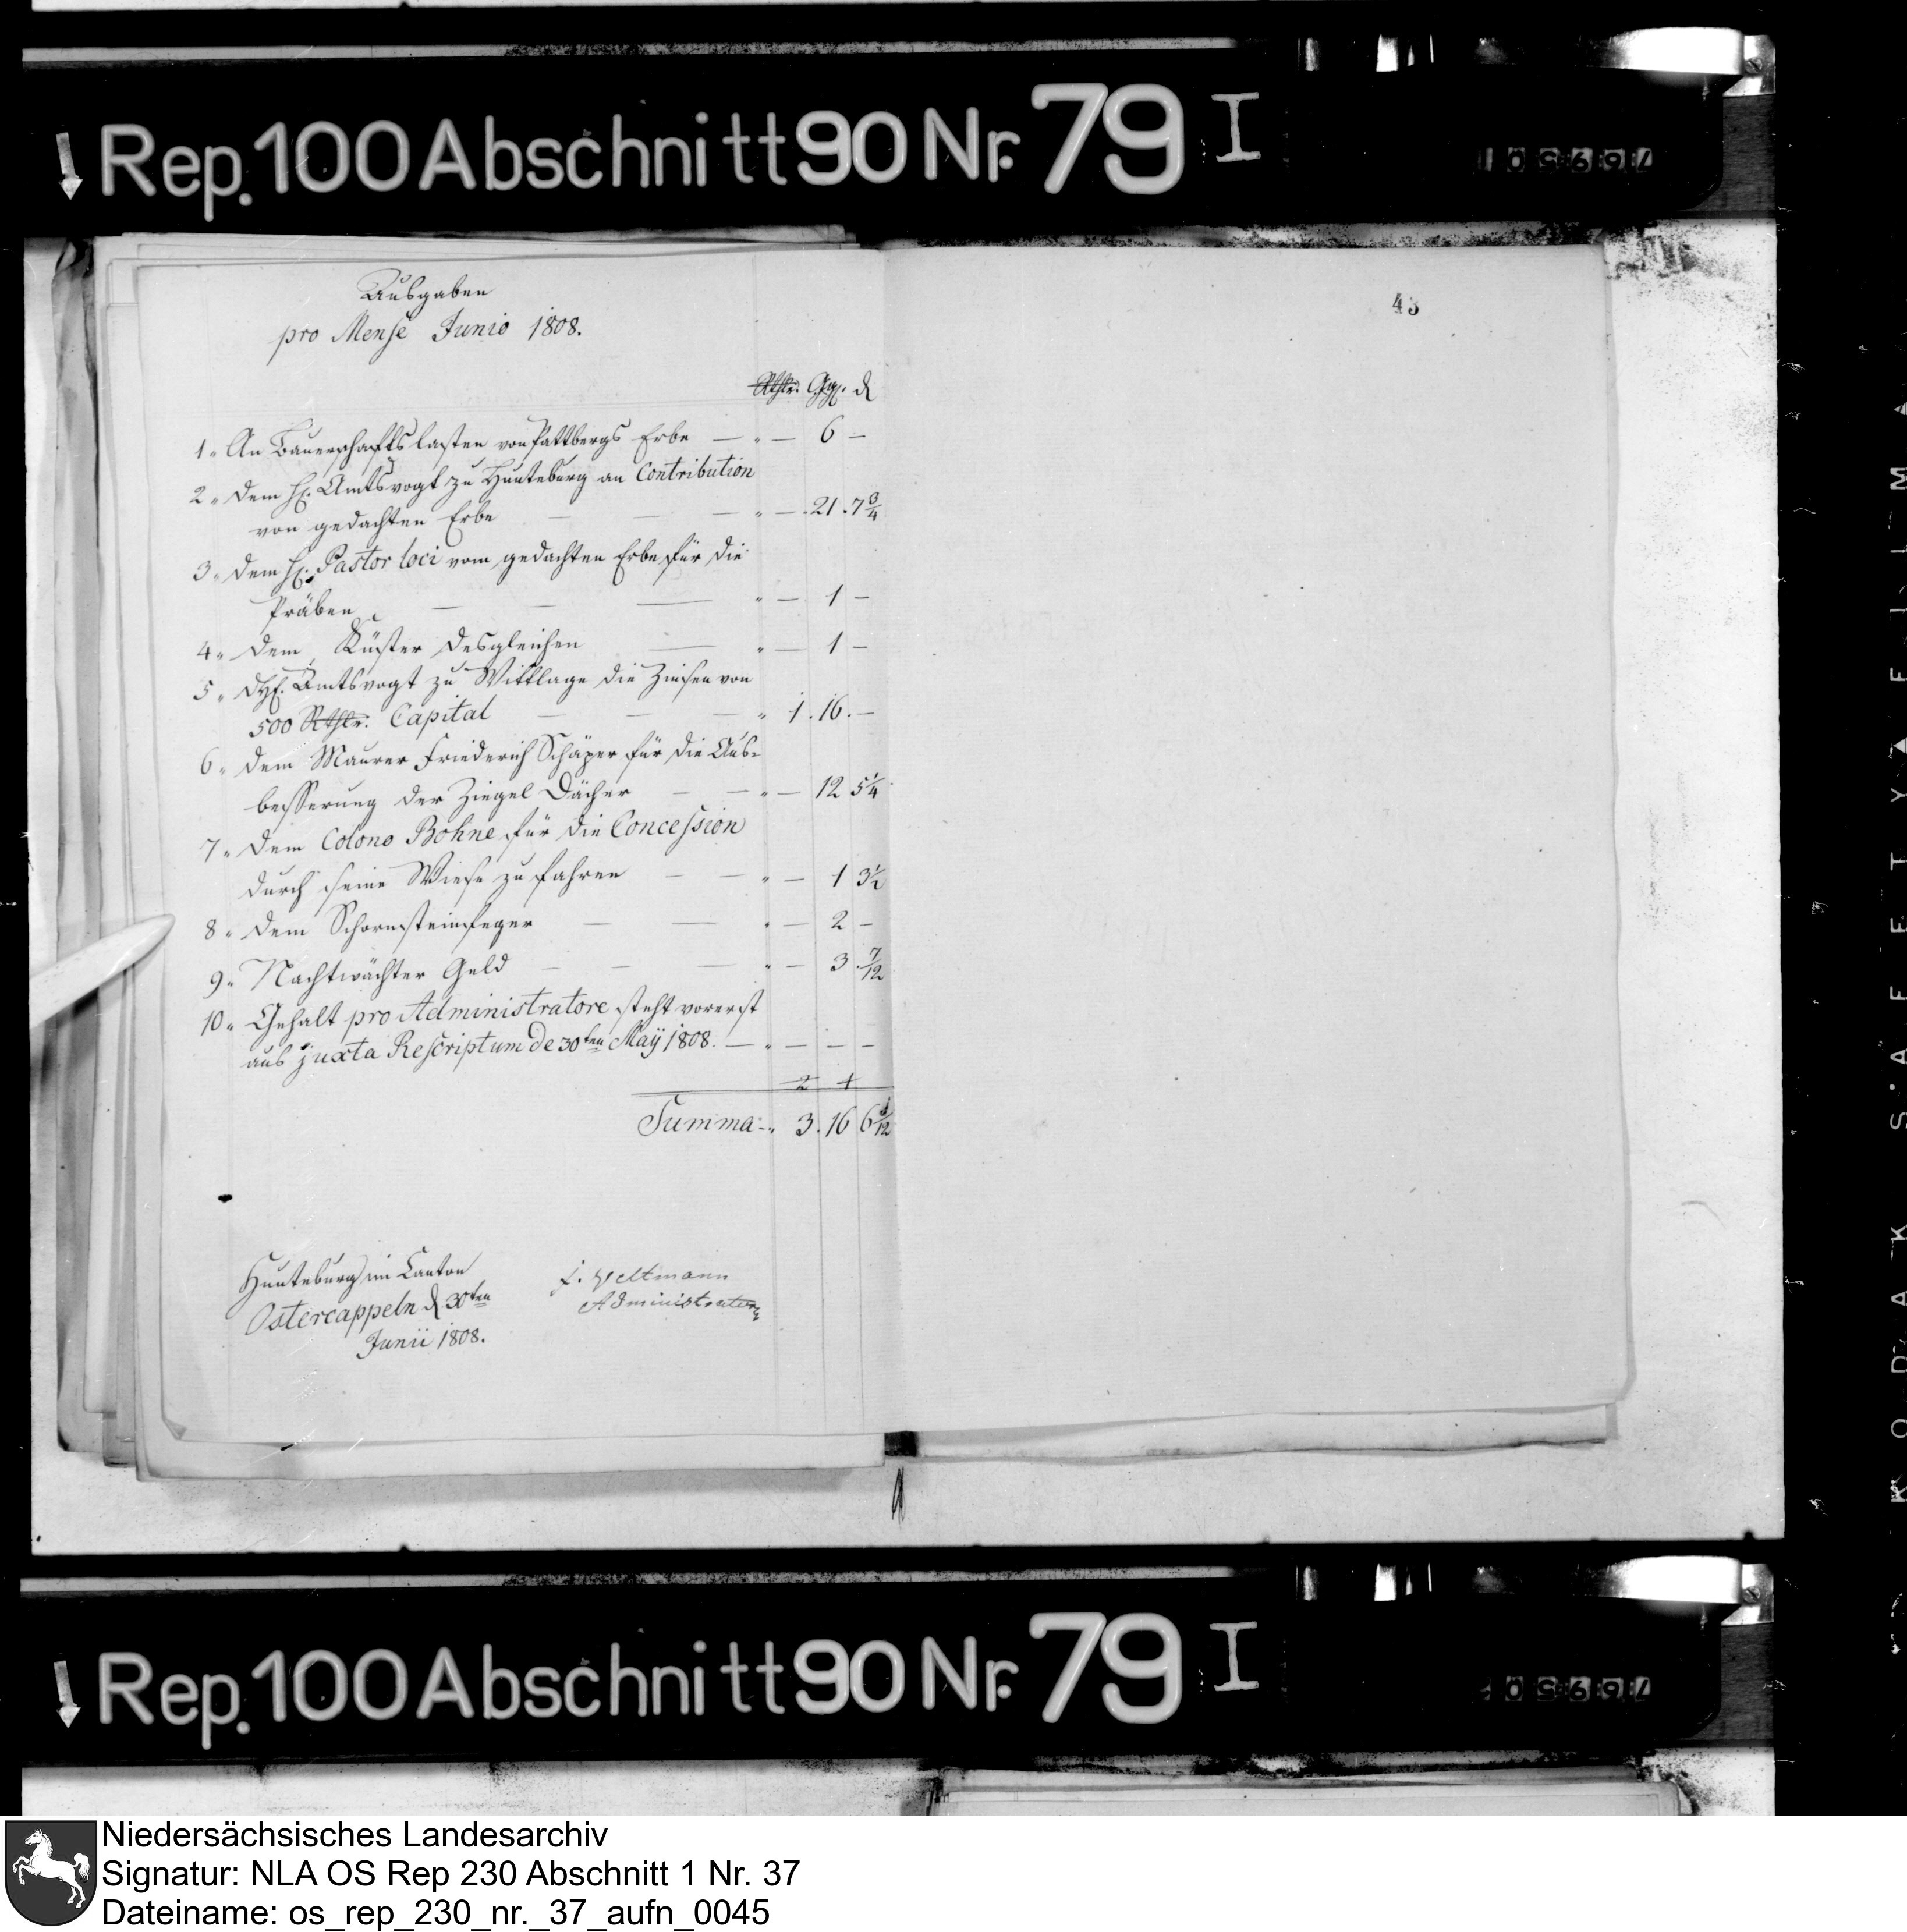 Rep. 100 Abschnitt 90 Nr. 79 I
43
Ausgaben
pro Mense Junio 1808.
Rthlr. Ggr. d
1. An Bauerschafts lasten von Pattbergs Erbe — " — 6 —
2. Dem H. Amtsvogt zu Hunteburg an Contribution
von gedachten Erbe — — — " — . 21 . 7 3/4
3. Dem H. Pastor loci vom gedachten Erbe für die
Präben — — — " — 1 —
4. Dem Küster desgleichen — " — 1 —
5. Amtsvogt zu Wittlage die Zinsen von
500 Rthlr. Capital — — — " 1 . 16 . —
6. Dem Maurer Friederich Schäper für die Aus-
besserung der Ziegel Dächer — — " — 12 5 1/4
7. Dem Colono Bohne für die Concession
durch seine Wiese zu fahren — — " — 1 3 1/2
8. Dem Schornsteinfeger — — " — 2 —
9. Nachtwächter Geld — — — " — 3 . 7/12
10. Gehalt pro Administratore steht vorerst
aus juxta Rescriptum de 30ten Maÿ 1808. — " — — —
2 1
Summa " 3 . 16 6 1/12
Hunteburg im Canton
Ostercappeln d 30ten
Junii 1808.
F. Veltmann
Administrator
Rep. 100 Abschnitt 90 Nr. 79 I
Niedersächsisches Landesarchiv
Signatur: NLA OS Rep 230 Abschnitt 1 Nr. 37
Dateiname: os_rep_230_nr._37_aufn_0045